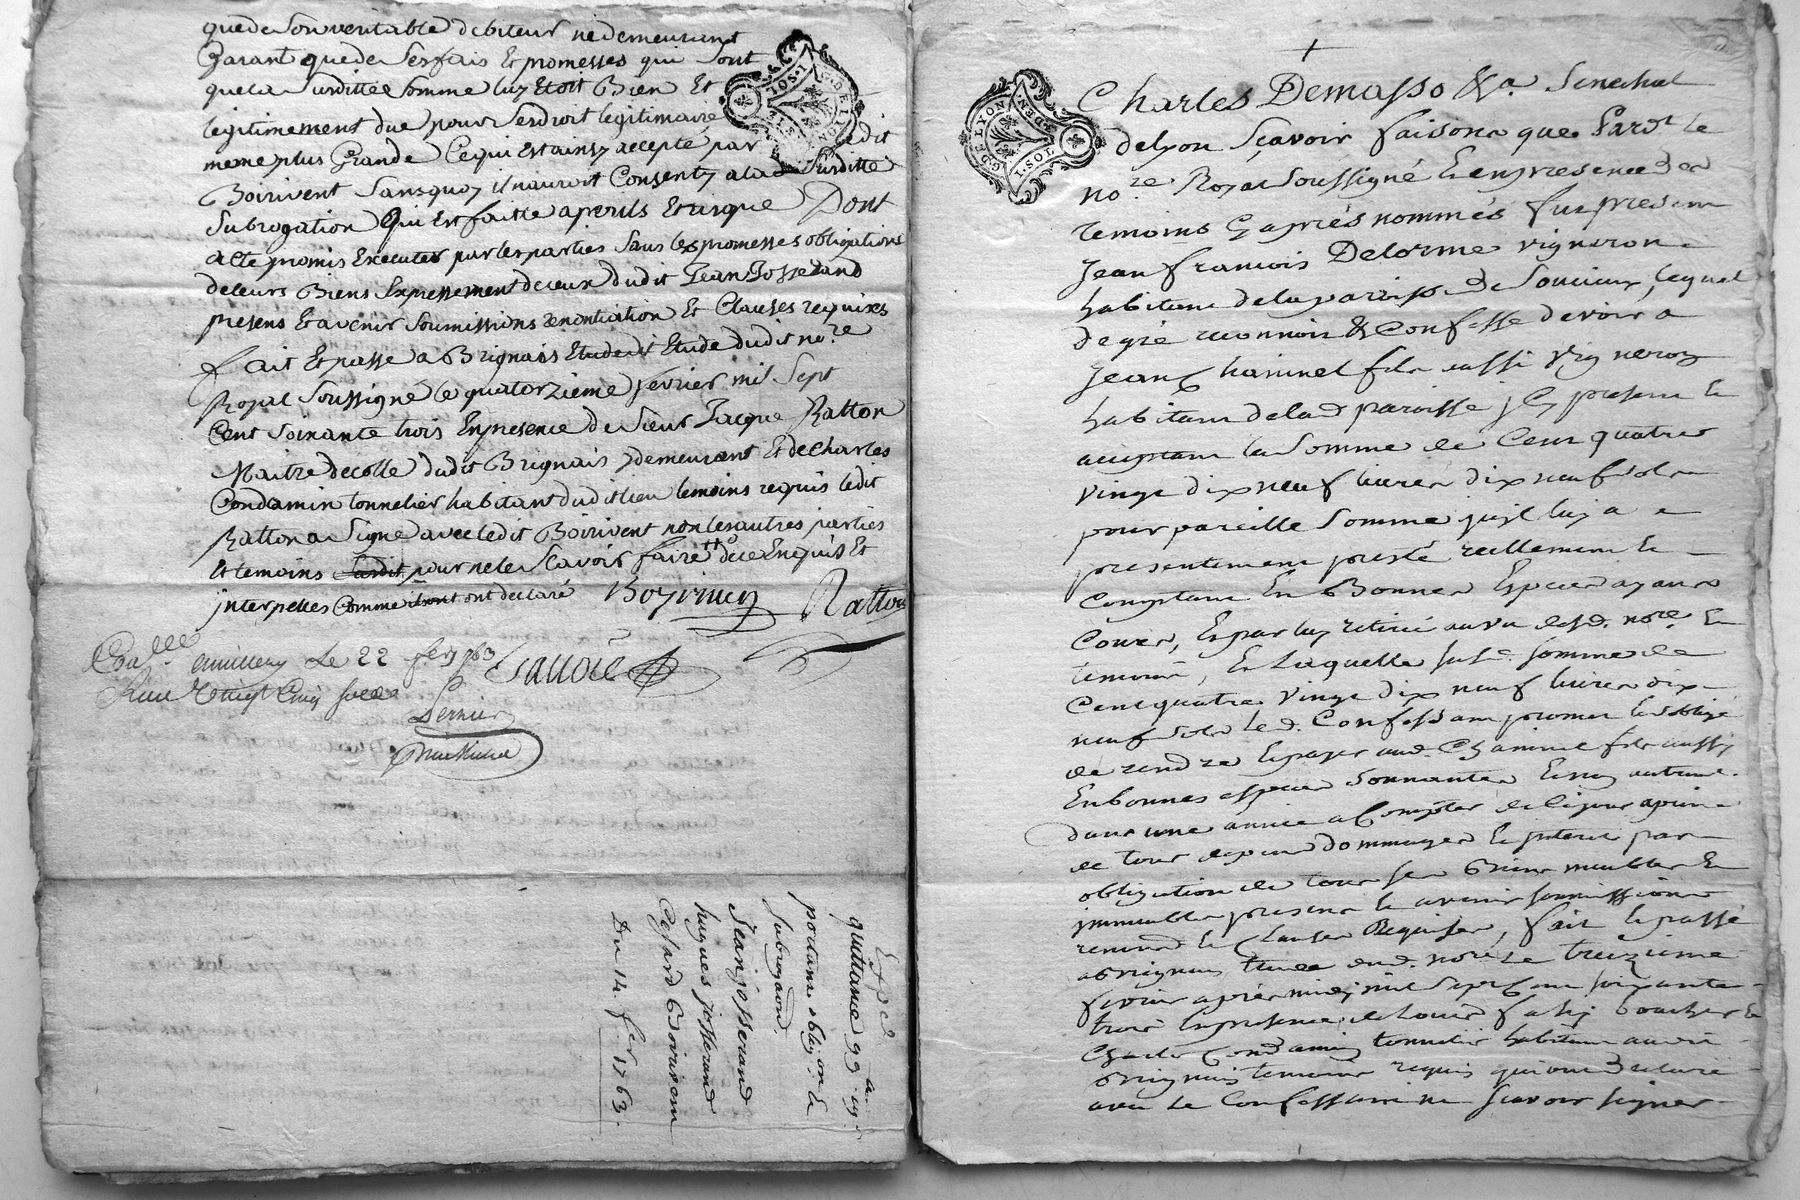 quede son veritable debiteur ne demeurant
Garant que de ses fais Et promesses qui sont
que la surditte somme luy Etoit Bien Et
legitimement due pour ses droit legitimaire
meme plus Grande Ce qui Est ainsy accepté par ledit
Boirivent sans quoy il nauroit Consenty a lad surditte
subrogation Qui Est faitte a perils Et risque Dont
acte promis Executer par les parties sous les promesses obligations
de leurs Biens Expressement de ceux dudit Jean Josserand
presens Et avenir soumissions renontiation Et Clauses requises
fait Et passe a Brignais Etude dudit no.re
Royal soussigné le quatorzieme fevrier mil sept
Cent soixante trois En presence de sieur Jacque Ratton
Maitre decolle dudit Brignais y demeurant Et de Charles
Condamin tonnelier habitant dudit lieu temoins requis ledit
Ratton a signe avec ledit Boirivent non les autres parties
Et temoins pour ne le scavoir faire de ce Enquis Et
interpelles Comme ils ont declaré Boyrivent Ratton
Con.lle a millery Le 22 fev 1763
Reçu vingt Cinq sols
quittance 99 19
portant oblig.on Et
subrogation
Jean josserand
hugues josserand
Cesard Boirivent
Du 14. fev. 1763.
+
Charles Demasso &.a Senechal
de lyon sçavoir faisons que Pard.t le
no.re Royal soussigné Et en presence des
temoins Cy apres nommés fut present
Jean francois Delorme vigneron
habitant de la paroisse de Soucieux, lequel
de gré reconnoit & Confesse devoir a
Jean Chainnel fils aussi vigneron
habitant de lad paroisse icy present Et
aceptant la somme de Cent quatre
vingt dix neuf livres dix neuf sols
pour pareille somme quil luy a
presentement presté reellement Et
Comptant En Bonnes Especes ayant
Cours, Et par luy retiré au vu dud. no.re Et
temoins, Et Laquelle susd. somme de
Cent quatre vingt dix neuf livres dix
neuf sols led. Confessant promet Et s'oblige
de rendre Et payer aud. Chainnel fils aussy
En bonnes especes sonnantes Et non autrement
dans une année a Compter de ce jour a peine
de tous depens dommages Et interets par
obligation de tous ses Biens meubles Et
immeubles presens Et avenir soumissions
renond. Et Clauses Requises, fait Et passé
a Brignais Etude dud. no.re Le treizieme
fevrier apres midy mil sept Cent soixante
trois En presence de Louis boucher Et
Charles Condamin tonnelier habitans audit
Brignais temoins requis qui ont declaré
avec Le Confessant ne scavoir signer